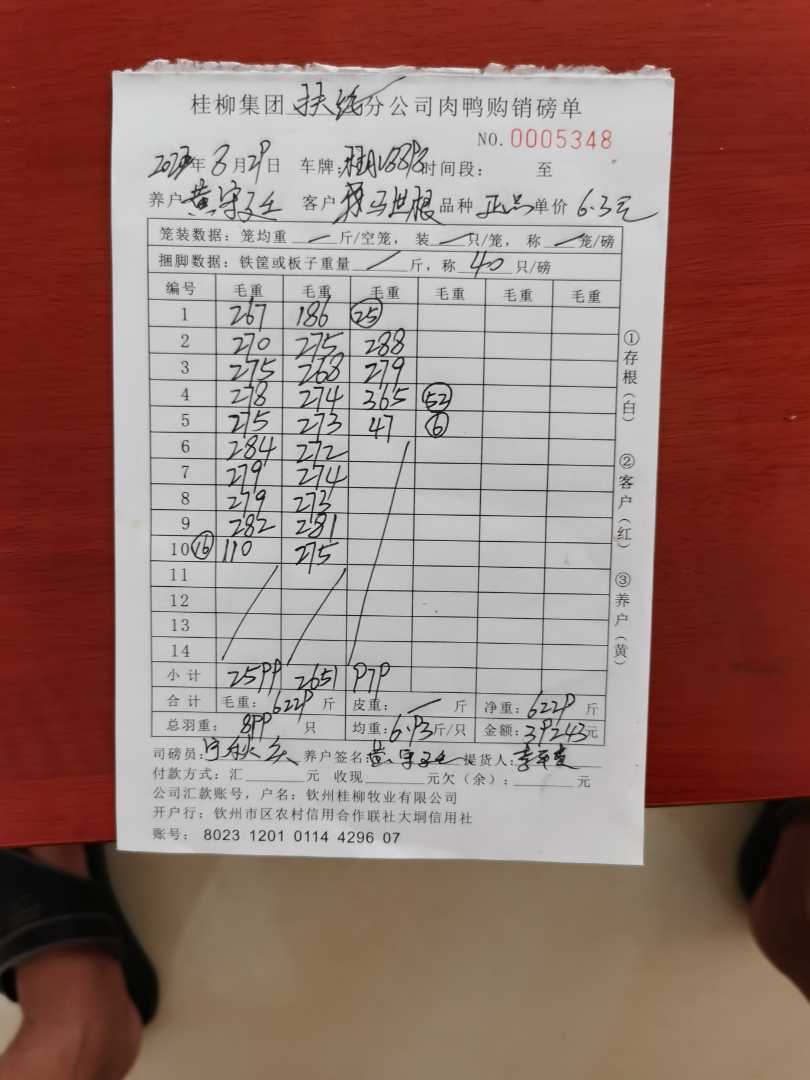 桂柳集团 扶绥 分公司肉鸭购销磅单
NO.0005348
年 8 月 29 日 车牌: 时间段: 至
养户 黄 客户 马世根 品种 正品 单价 6.3元
笼装数据:笼均重 — 斤/空笼, 装 — 只/笼, 称 — 笼/磅
捆脚数据:铁筐或板子重量 — 斤,称 40 只/磅
编号 毛重 毛重 毛重 毛重 毛重 毛重
1 267 186 25
2 270 275 288
3 275 268 279
4 278 274 365 52
5 275 273 47 6
6 284 272
7 279 274
8 279 273
9 282 281
10 16 110 275
11
12
13
14
小计 2599 2651 979
合计 毛重: 6229 斤 皮重: — 斤 净重: 6229 斤
总羽重: 899 只 均重: 6.93 斤/只 金额: 39243 元
司磅员: 养户签名: 黄 提货人: 李
付款方式:汇 元 收现 元欠(余): 元
公司汇款账号,户名:钦州桂柳牧业有限公司
开户行:钦州市区农村信用合作联社大垌信用社
账号: 8023 1201 0114 4296 07
①存根(白)
②客户(红)
③养户(黄)